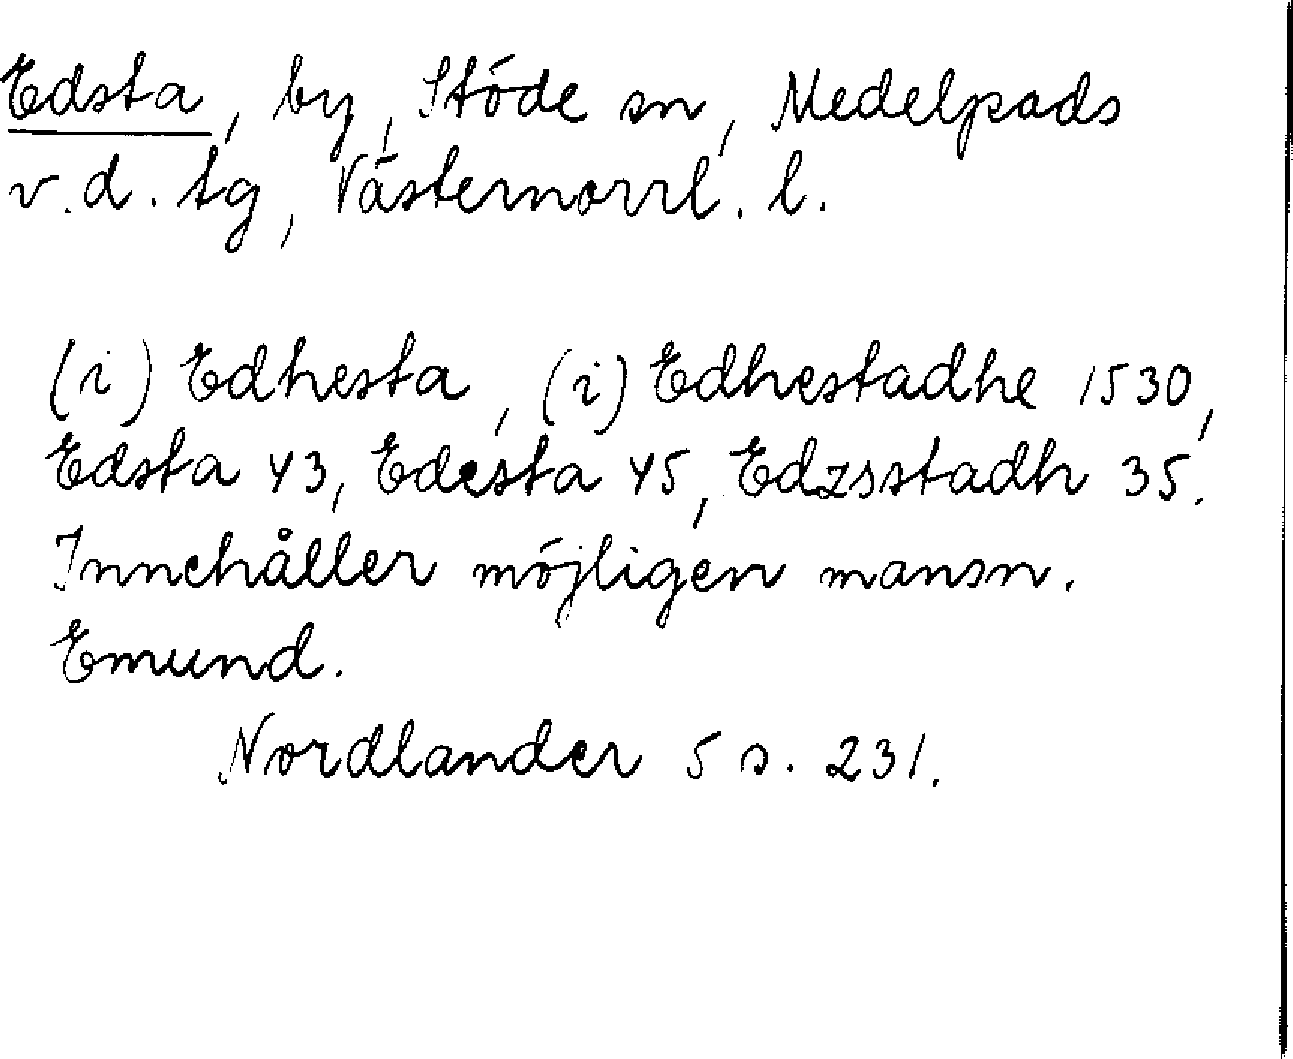 Edsta, by, Stöde sn, Medelpads
v.d. tg, Västernorrl. l.
(i) Edhesta, (i) Edhestadhe 1530,
Edsta 43, Edesta 45, Edzsstadh 35.
Innehåller möjligen mansn.
Emund.
Nordlander 5 s. 231.